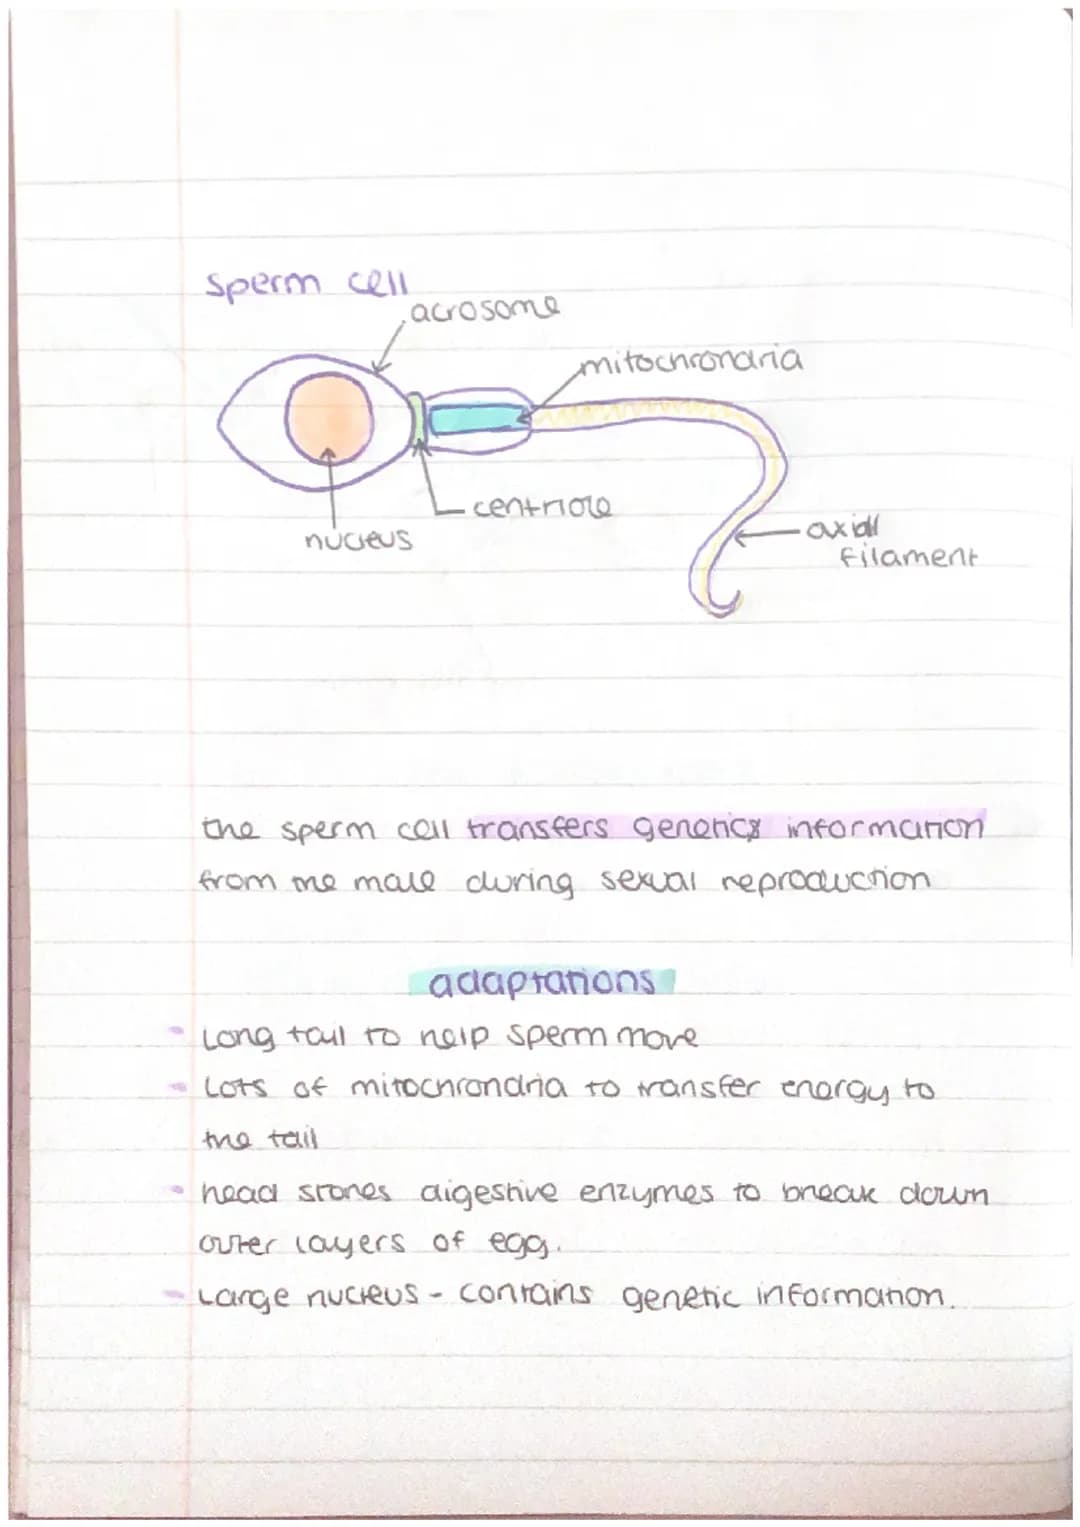 sperm cell
acrosome
mitochrondria
centriole
nucleus
axial
filament
the sperm cell transfers genetics information
from the male during sexual reproduction
adaptations
- Long tail to help sperm move
- Lots of mitochrondria to transfer energy to
the tail
- head stores digestive enzymes to break down
outer layers of egg.
- Large nucleus - contains genetic information.